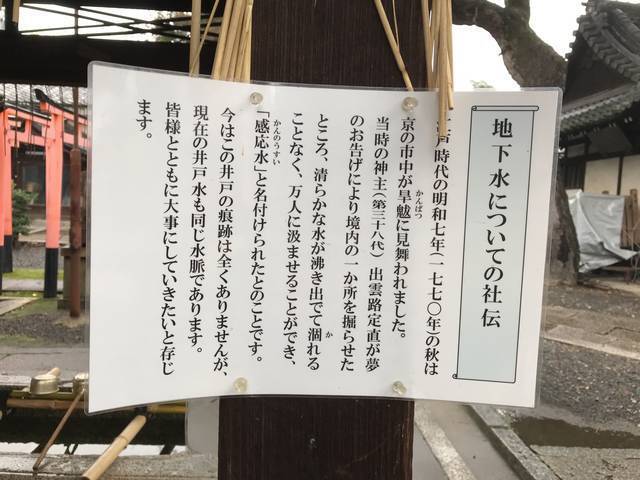 地下水についての社伝
江戸時代の明和七年(一七七〇年)の秋は
京の市中が旱魃に見舞われました。
かんばつ
当時の神主(第三十八代)出雲路定直が夢
のお告げにより境内の一か所を掘らせた
ところ、清らかな水が沸き出でて涸れる
か
ことなく、万人に汲ませることができ、
「感応水」と名付けられたとのことです。
かんのうすい
今はこの井戸の痕跡は全くありませんが、
現在の井戸水も同じ水脈であります。
皆様とともに大事にしていきたいと存じ
ます。